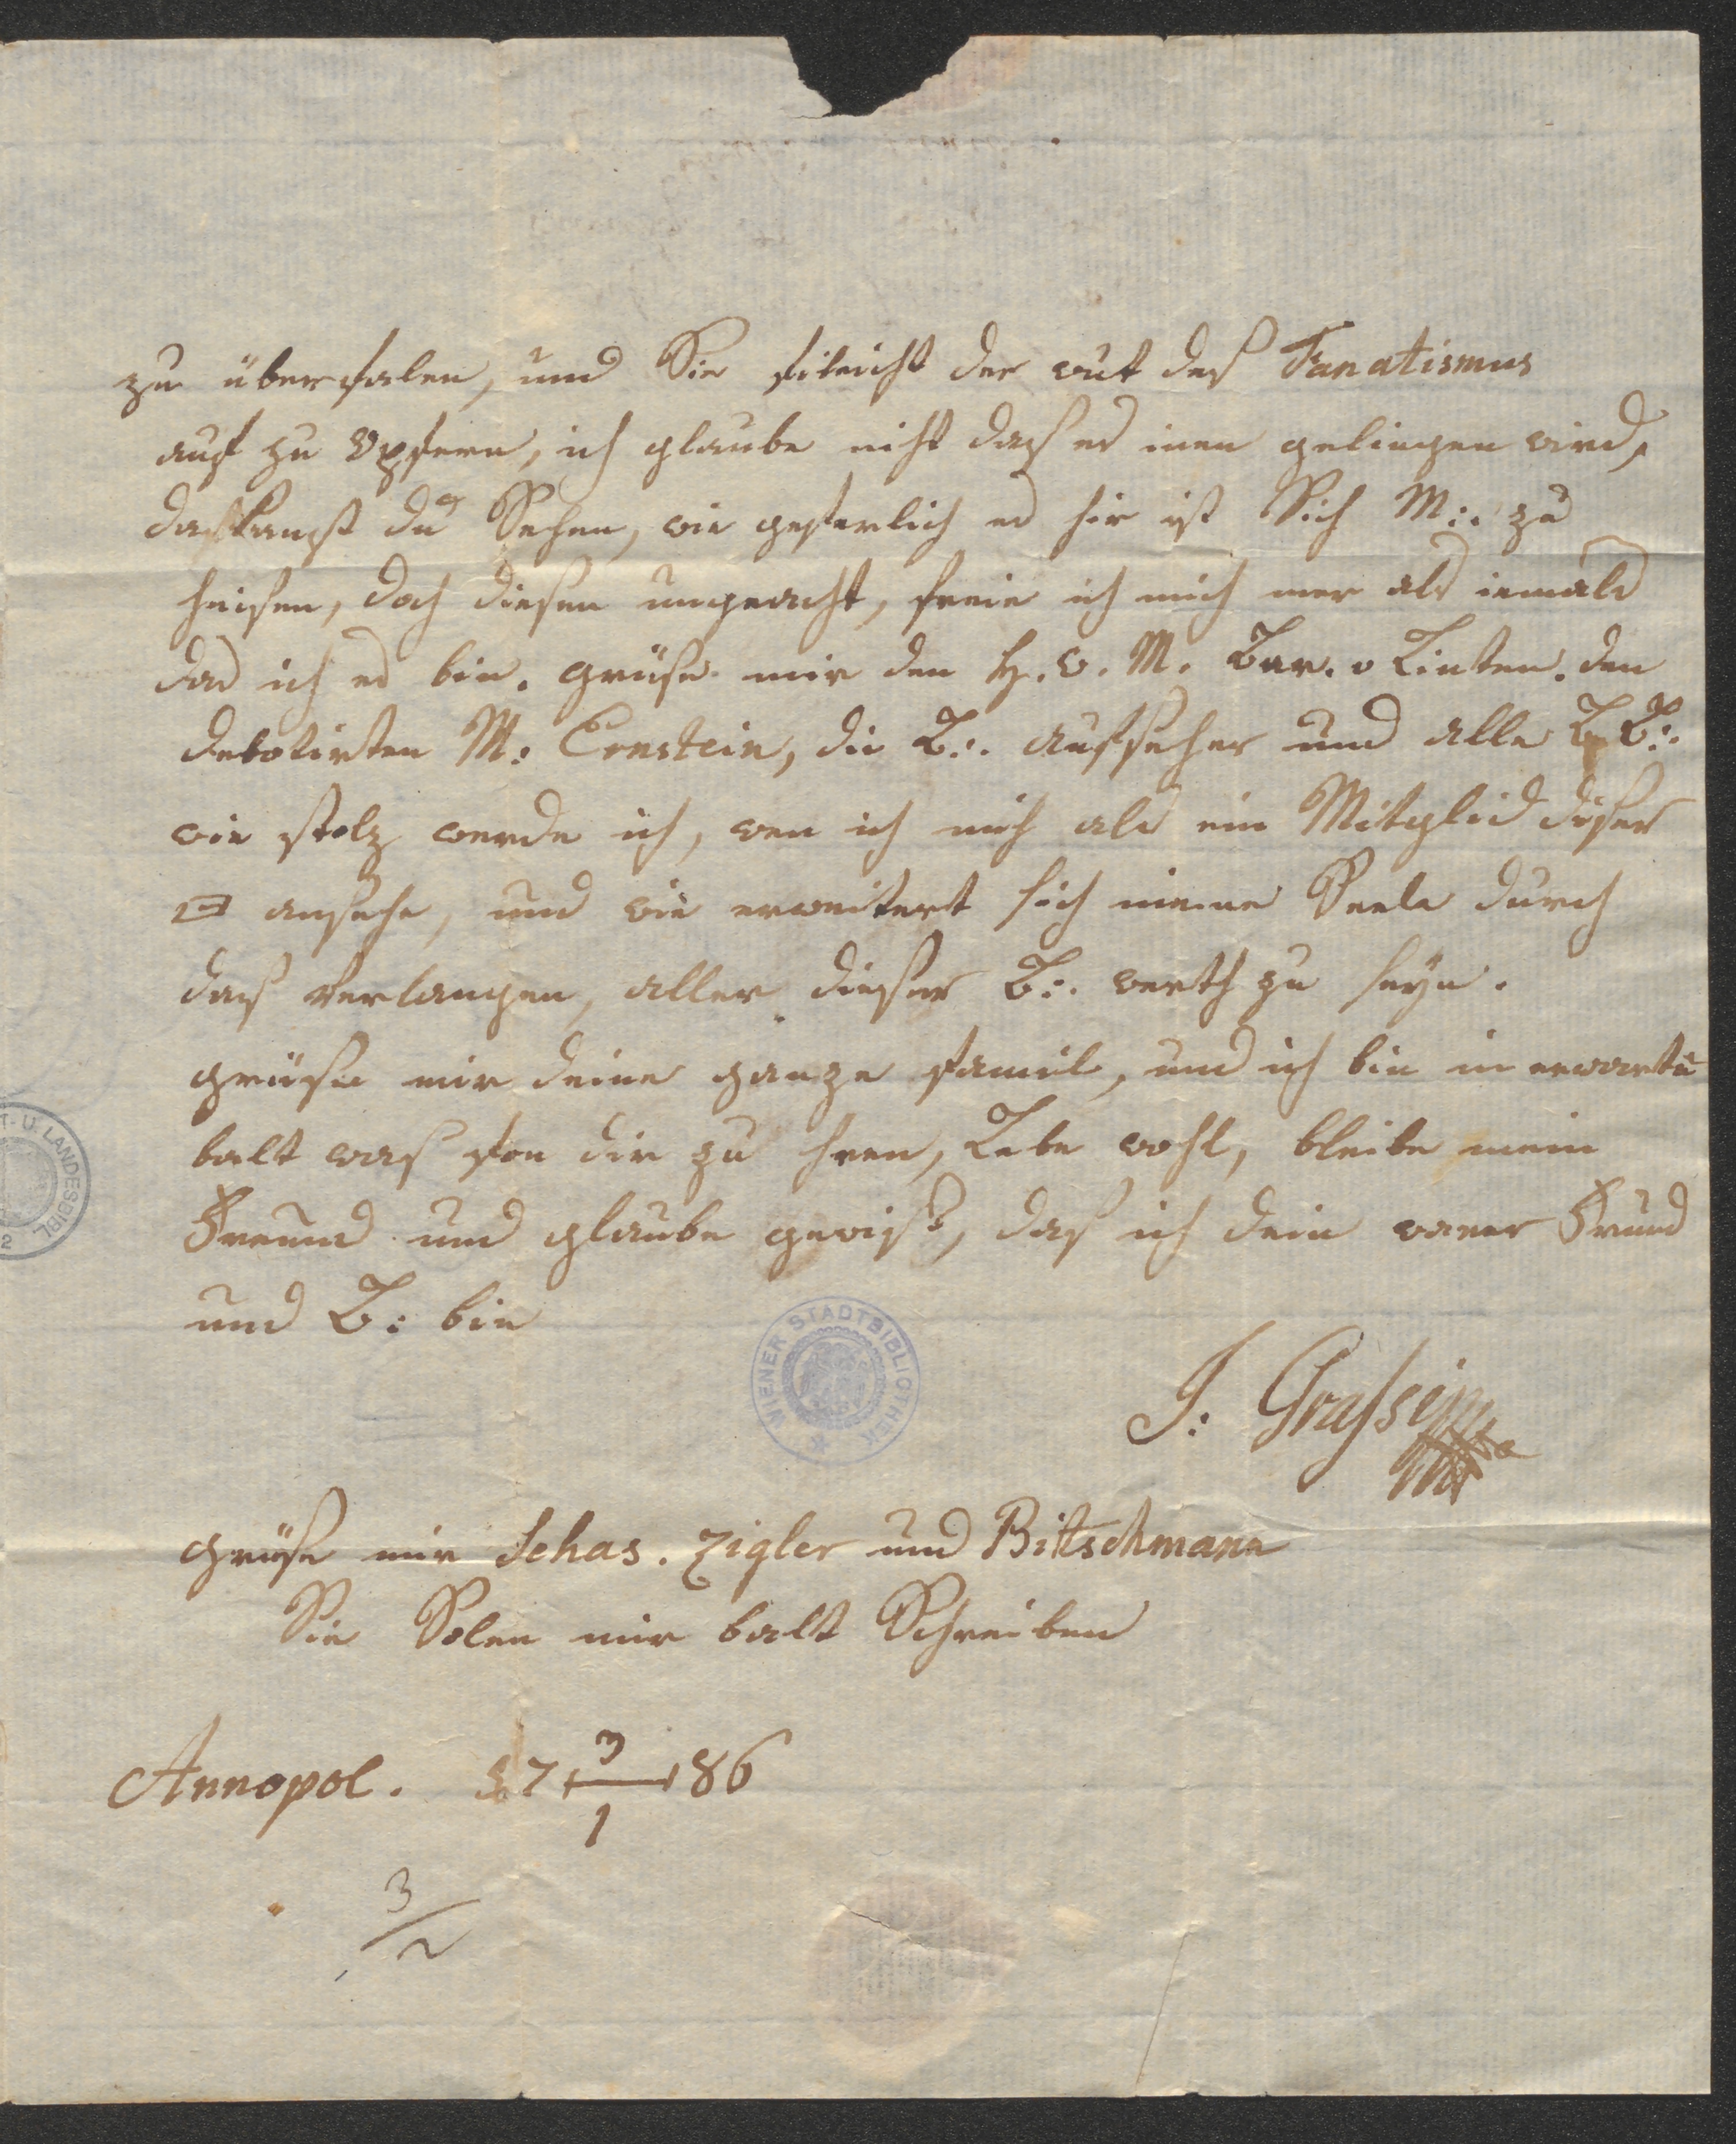 zu überfalen, und Sie fileicht der wut deß Fanatismus
auf zu opfern, ich glaube nicht daß es inen gelingen wird,
daß kanst du Sehen, wie geferlich es hir ist Sich M:. zu
heisen, doch diesen ungeacht, freie ich mich mer als iemals
das ich es bin. grüse mir den H. v. M. Bar. v Linten. den
debotirten M: Ernstein, die B:. aufseher und alle BB:.
wie stolz werde ich, wen ich mich als ein Mitglid diser
▭ ansehe, und wie erweitert sich meine Seele durch
daß verlangen, aller dieser B:. werth zu seyn.
grüse mir deine ganze famil, und ich bin in erwartū
balt waß fon dir zu hren, Lebe wohl, bleibe mein
Freund und glaube gewiß, daß ich dein warer Frund
und B: bin
J: Grassi
grüse mir Schas. Zigler und Bitschmann
Sie Solen mir balt Schreiben
Annopol. 17 3/1 86
3/2
WIENER STADTBIBLIOTHEK
T- U. LANDESBIBL